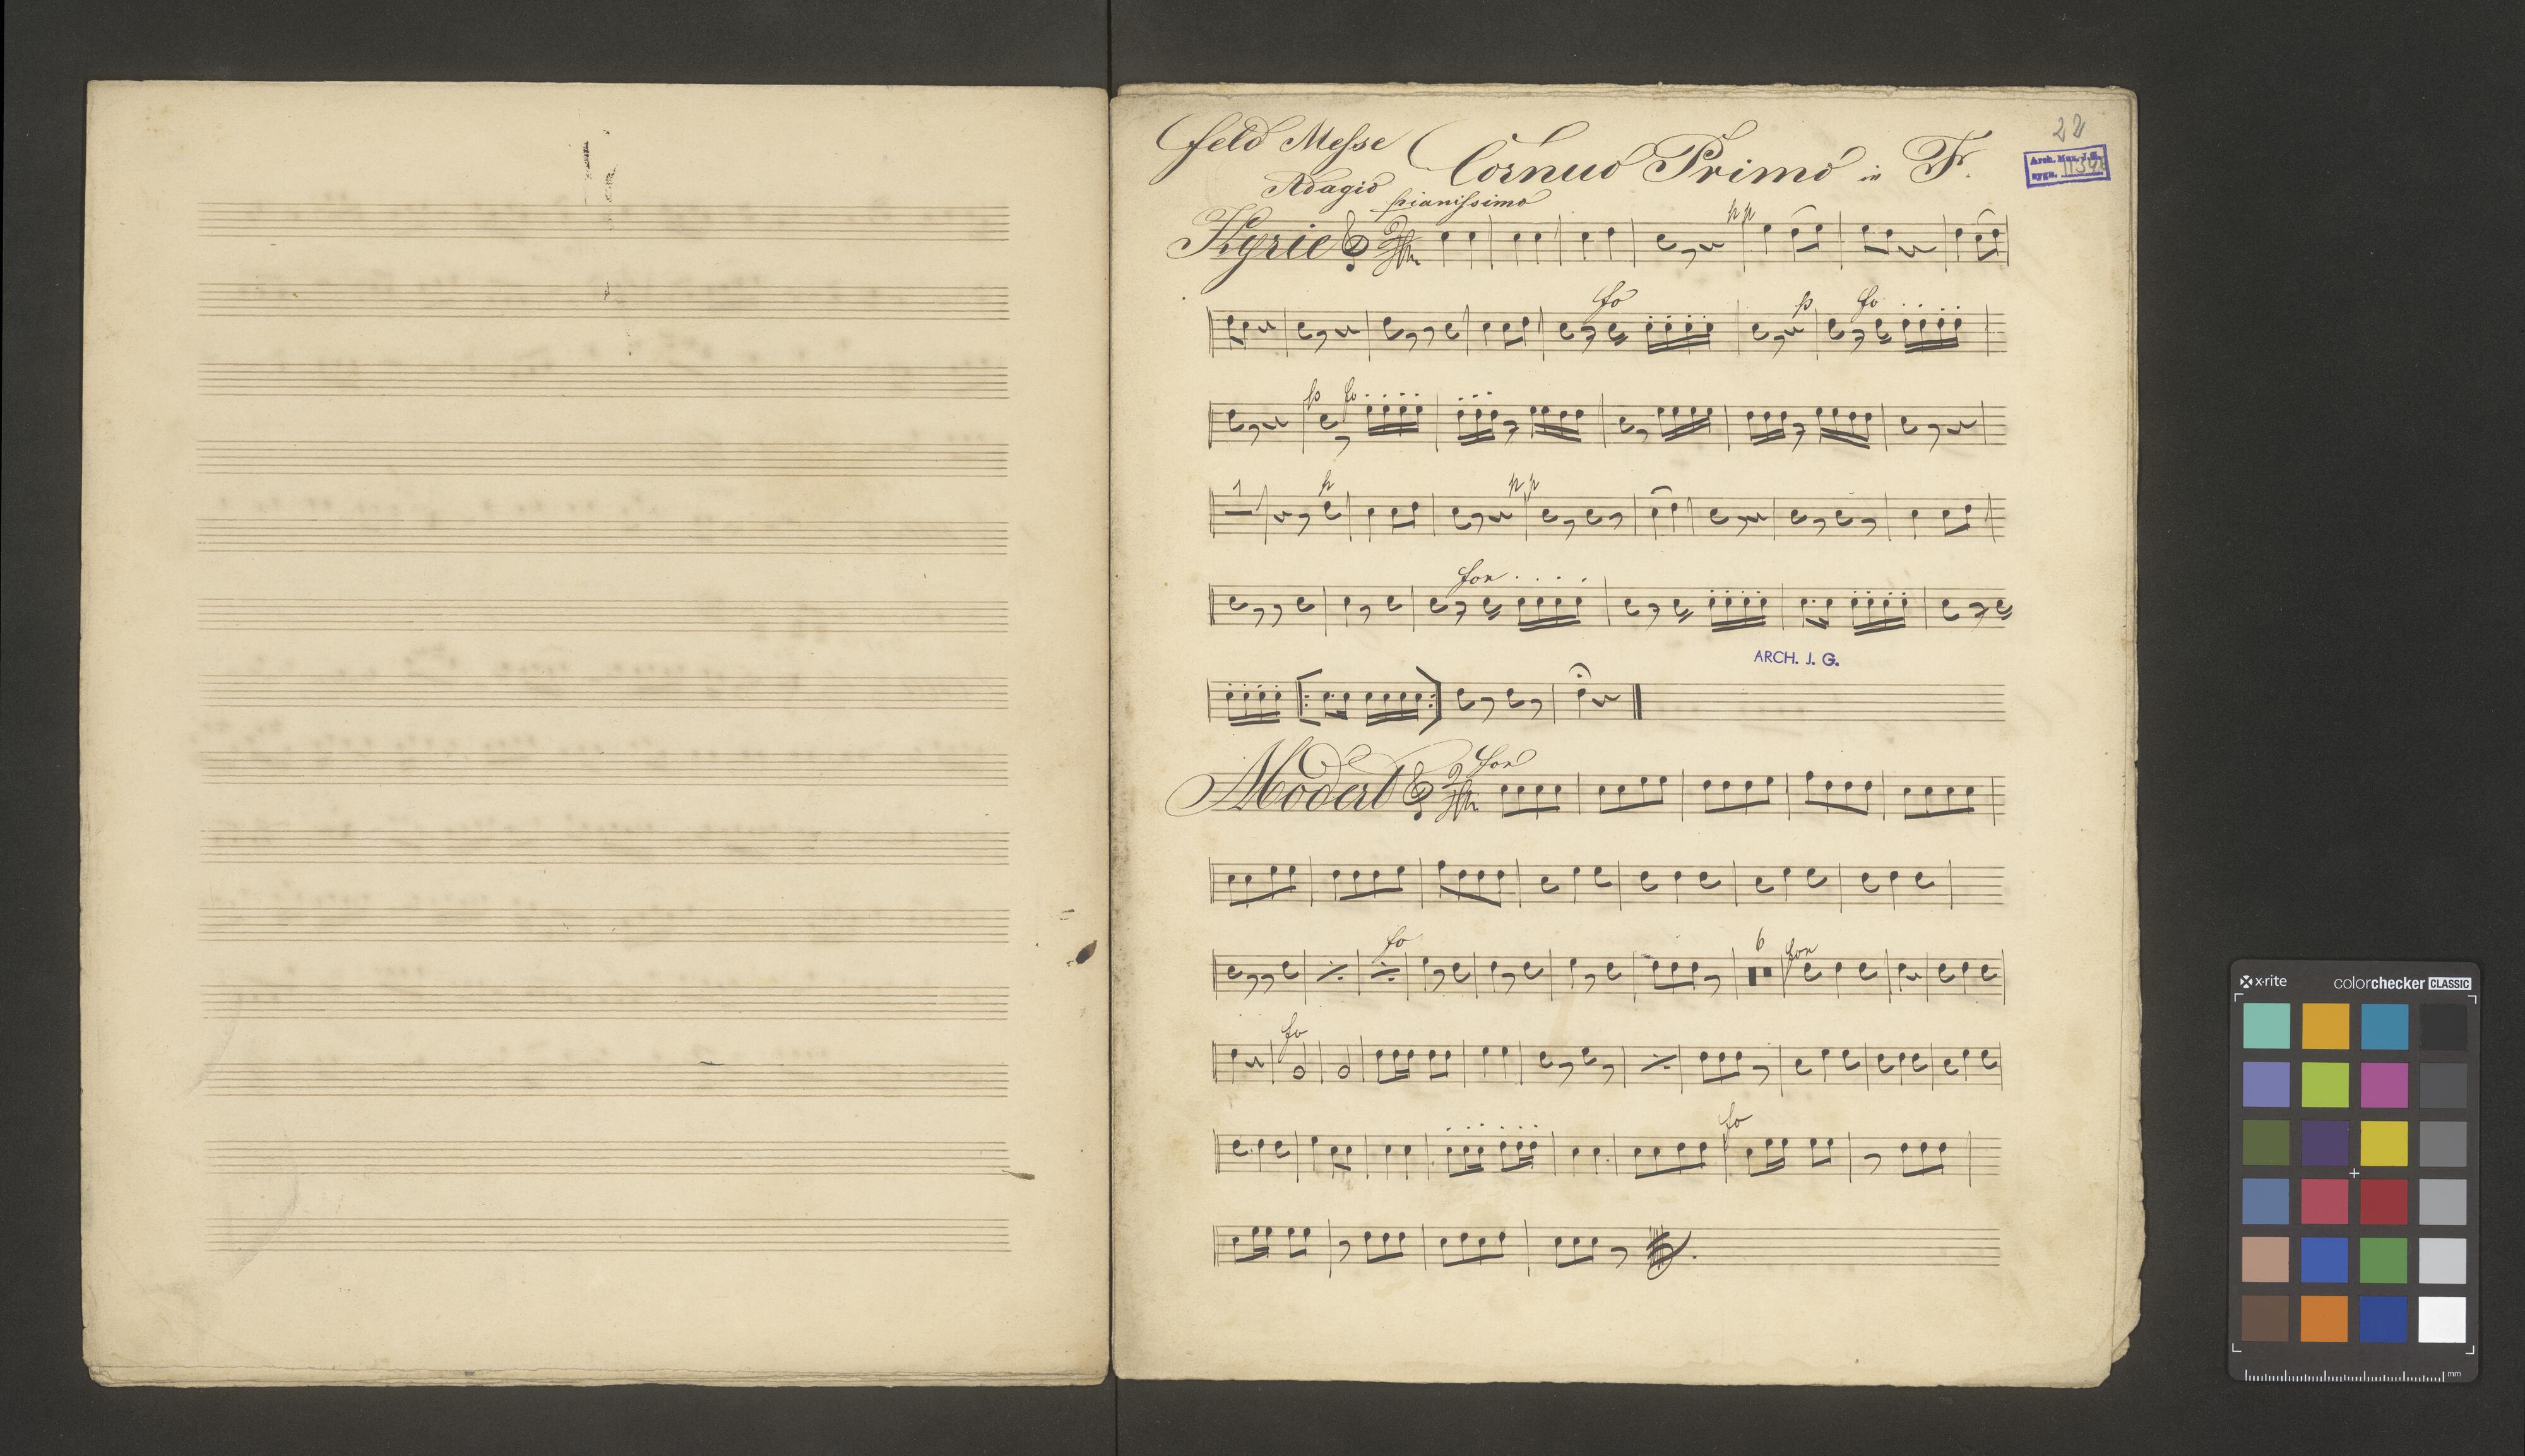 22
Feld Messe Cornuo Primo in F.
Arch. Muz. J. G.
sygn.
Adagio pianissimo
Kyrie 2/4 pp
fo p fo
p fo
1 p pp
for
ARCH. J. G.
Moderto 2/4 for
fo 6 for
fo
fo
x·rite colorchecker CLASSIC
mm